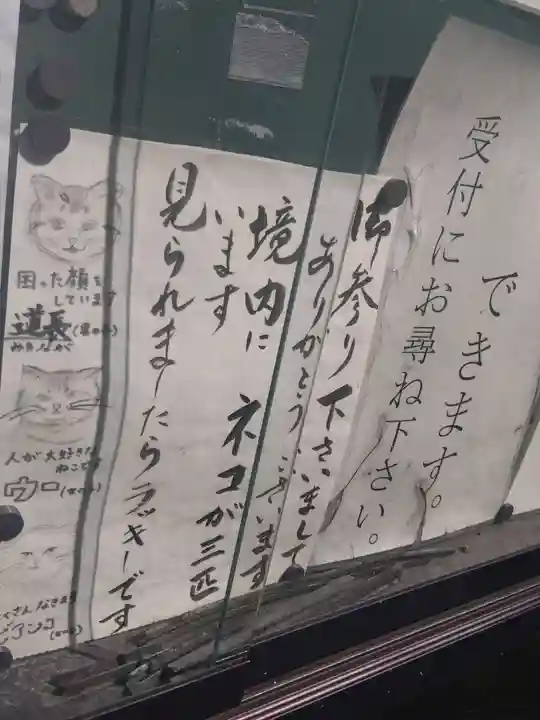 できます。
受付にお尋ね下さい。
御参り下さいまして
ありがとうございます
境内に ネコが三匹
います
見られましたらラッキーです
困った顔を
しています
道長
みちなが
人が大好きな
ねこです
ウー
さんなきます
ビアンコ